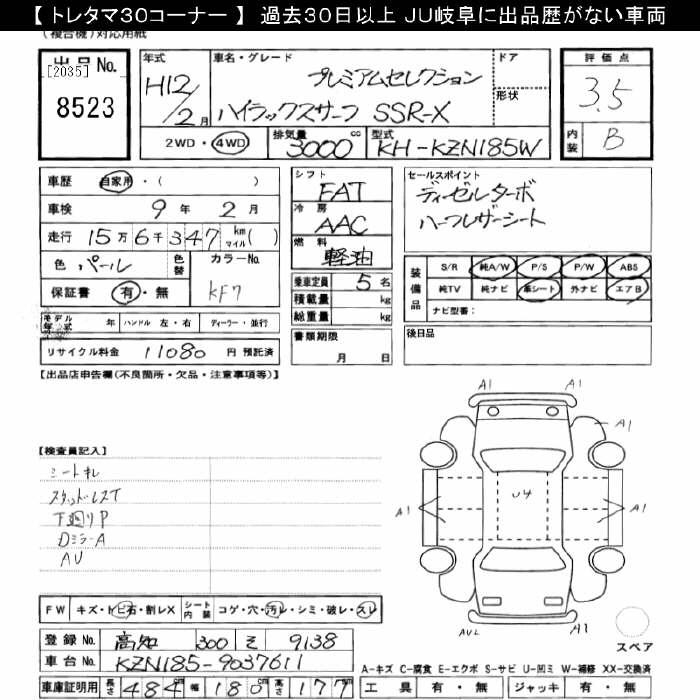 【トレタマ30コーナー】 過去30日以上 JU岐阜に出品歴がない車両
(複合機)対応用紙
出品No.
[2035]
8523
年式
H12/2月
車名・グレード
プレミアムセレクション
ハイラックスサーフ SSR-X
ドア
形状
2WD・4WD
排気量
3000cc
型式
KH-KZN185W
評価点
3.5
内装
B
車歴 自家用・( )
車検 9年 2月
走行 15万6千347 km マイル( )
色 パール 色替
カラーNo.
KF7
保証書 有・無
モデル年式 年 ハンドル 左・右 ディーラー・並行
リサイクル料金 11080 円 預託済
シフト
FAT
冷房
AAC
燃料
軽油
乗車定員 5名
積載量 kg
総重量 kg
書類期限
月 日
セールスポイント
ディーゼルターボ
ハーフレザーシート
装備品
S/R 純A/W P/S P/W ABS
純TV 純ナビ 革シート 外ナビ エアB
ナビ型番:
後日品
【出品店申告欄(不良箇所・欠品・注意事項等)】
【検査員記入】
シートキレ
スタッドレスT
下廻りP
DミラーA
AU
A1 A1
A1
A1 U4 A1
AU2 A1
スペア
FW キズ・トビ石・割レX シート内装 コゲ・穴・汚レ・シミ・破レ・スレ
登録No. 高知 300 そ 9138
車台No. KZN185-9037611
車庫証明用 長さ 484cm 幅 180cm 高さ 177cm
A-キズ C-腐食 E-エクボ S-サビ U-凹ミ W-補修 XX-交換済
工具 有・無 ジャッキ 有・無